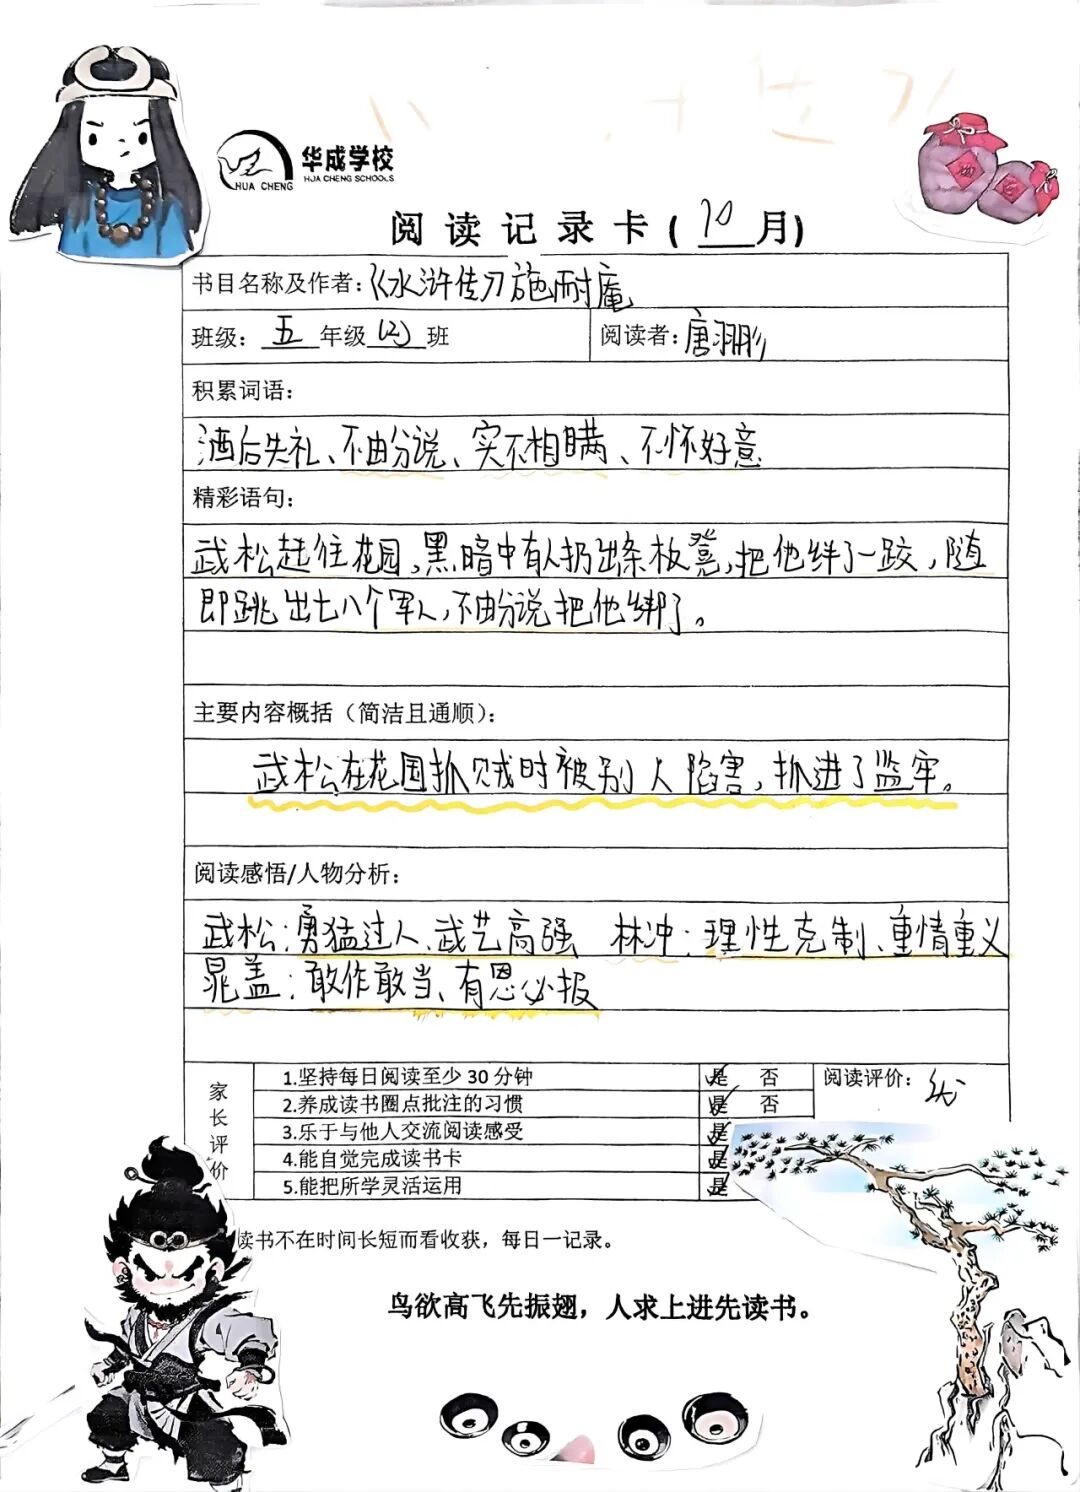 华成学校
HUA CHENG
HUA CHENG SCHOOLS
阅读记录卡(10月)
书目名称及作者:《水浒传》施耐庵
班级:五年级(2)班 阅读者:唐羽彤
积累词语:
酒后失礼、不由分说、实不相瞒、不怀好意
精彩语句:
武松赶往花园,黑暗中有人扔出条板凳,把他绊了一跤,随
即跳出七八个军人,不由分说把他绑了。
主要内容概括(简洁且通顺):
武松在花园抓贼时被别人陷害,抓进了监牢。
阅读感悟/人物分析:
武松:勇猛过人、武艺高强 林冲:理性克制、重情重义
晁盖:敢作敢当、有恩必报
家长评价
1.坚持每日阅读至少30分钟 是 否
2.养成读书圈点批注的习惯 是 否
3.乐于与他人交流阅读感受 是
4.能自觉完成读书卡 是
5.能把所学灵活运用 是
阅读评价:优
读书不在时间长短而看收获,每日一记录。
鸟欲高飞先振翅,人求上进先读书。